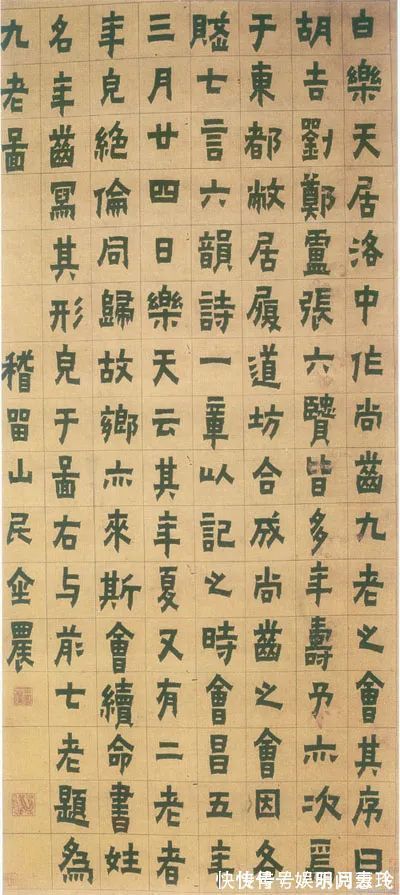 白樂天居洛中作尚齒九老之會其序曰
胡吉劉鄭盧張六賢皆多年壽予亦次焉
于東都敝居履道坊合成尚齒之會因各
賦七言六韻詩一章以記之時會昌五年
三月廿四日樂天云其年夏又有二老者
年皃絕倫同歸故鄉亦來斯會續命書姓
名年齒寫其形皃于啚右与前七老題為
九老啚 稽留山民金農